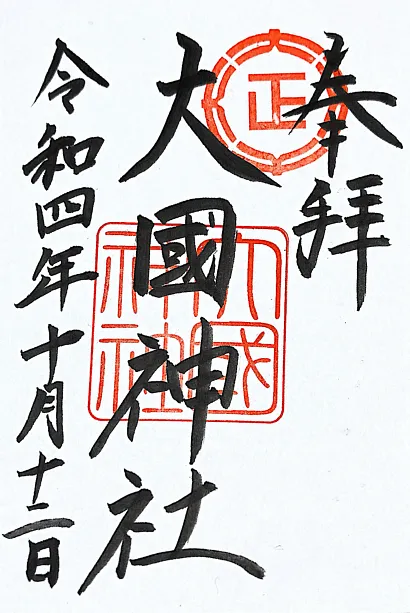 奉拝
正
大國神社
大國神社
令和四年十月十二日